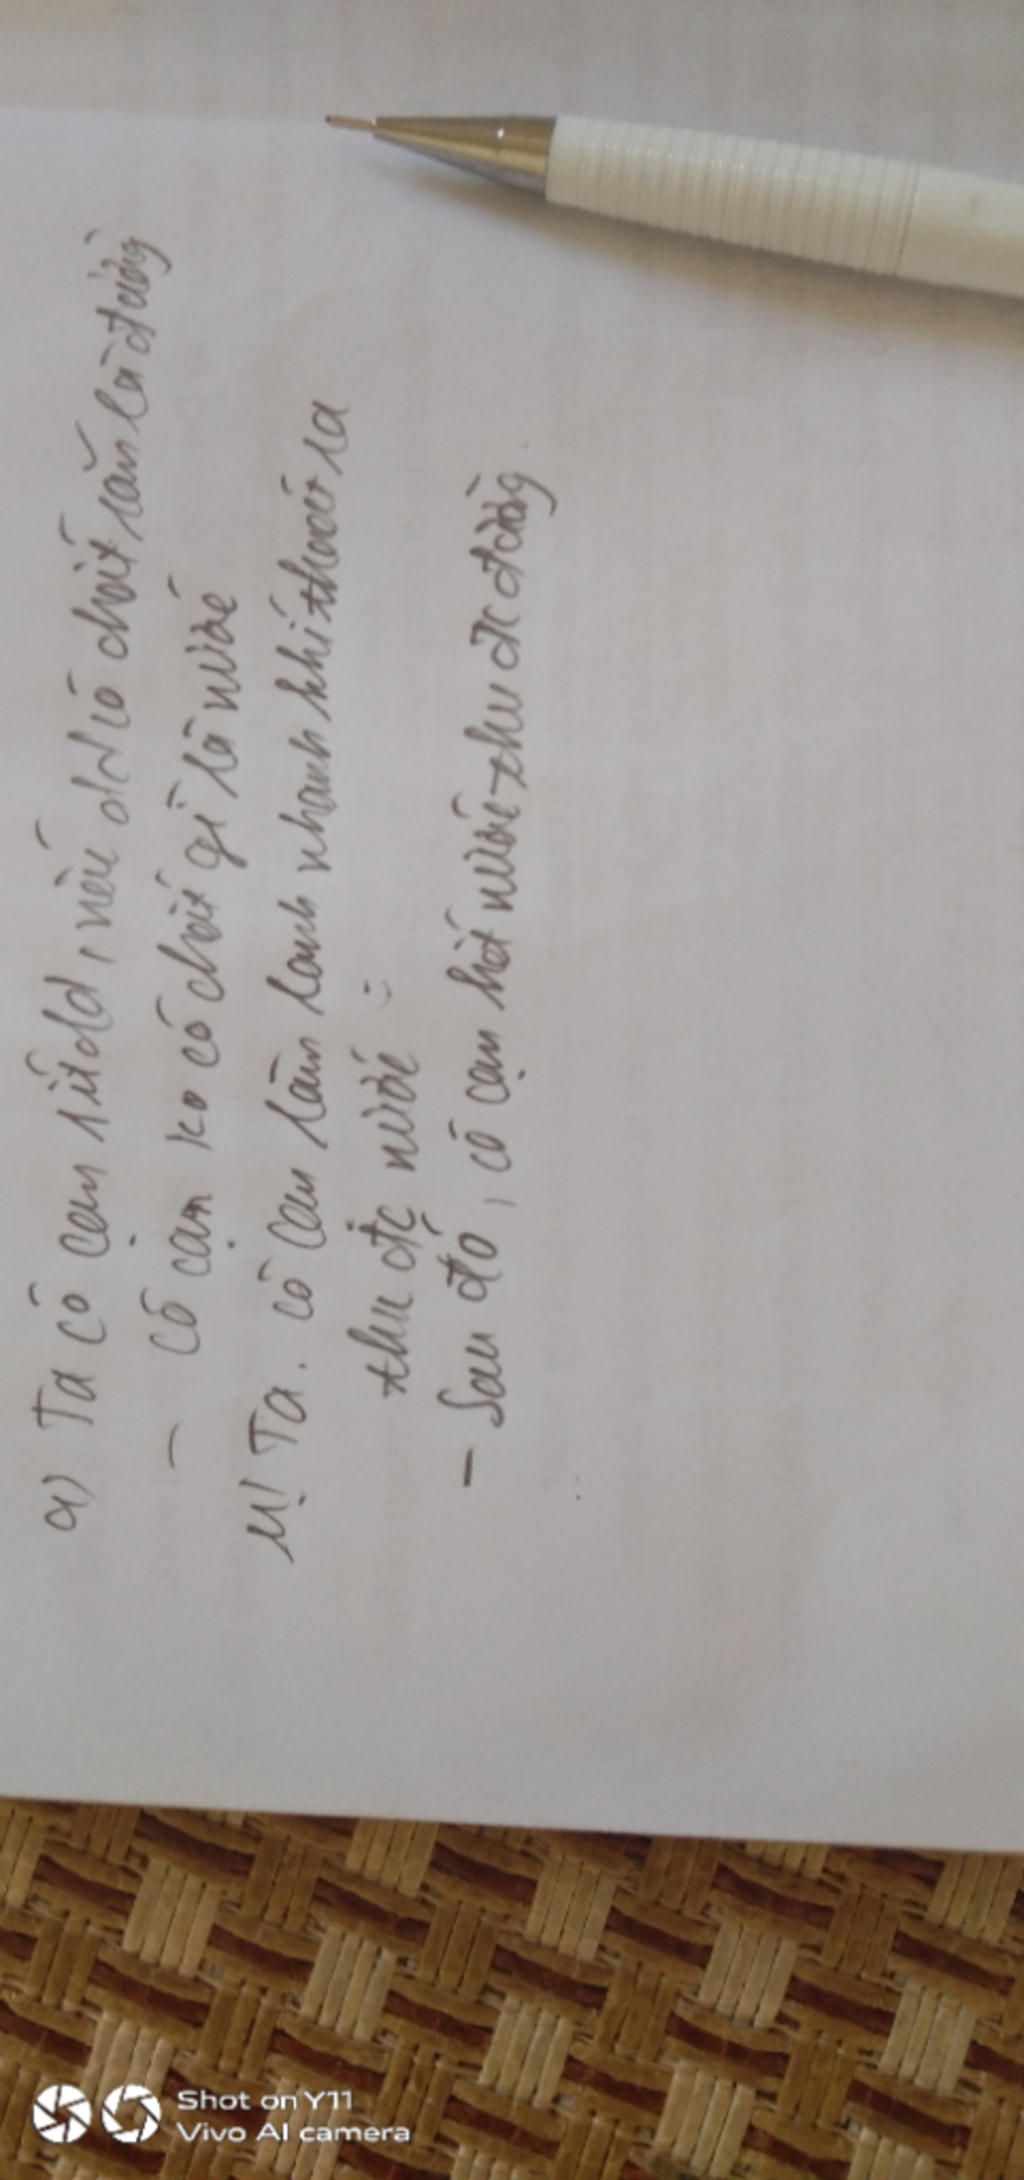 a) Ta cô cạn 1 ít dd, nếu dd có chất rắn là đường
- cô cạn ko có chất gì là nước
Ta. cô cạn làm lạnh nhanh khí thoát ra
thu đc nước :
- Sau đó, cô cạn hết nước thu đc đường
Shot on Y11
Vivo AI camera